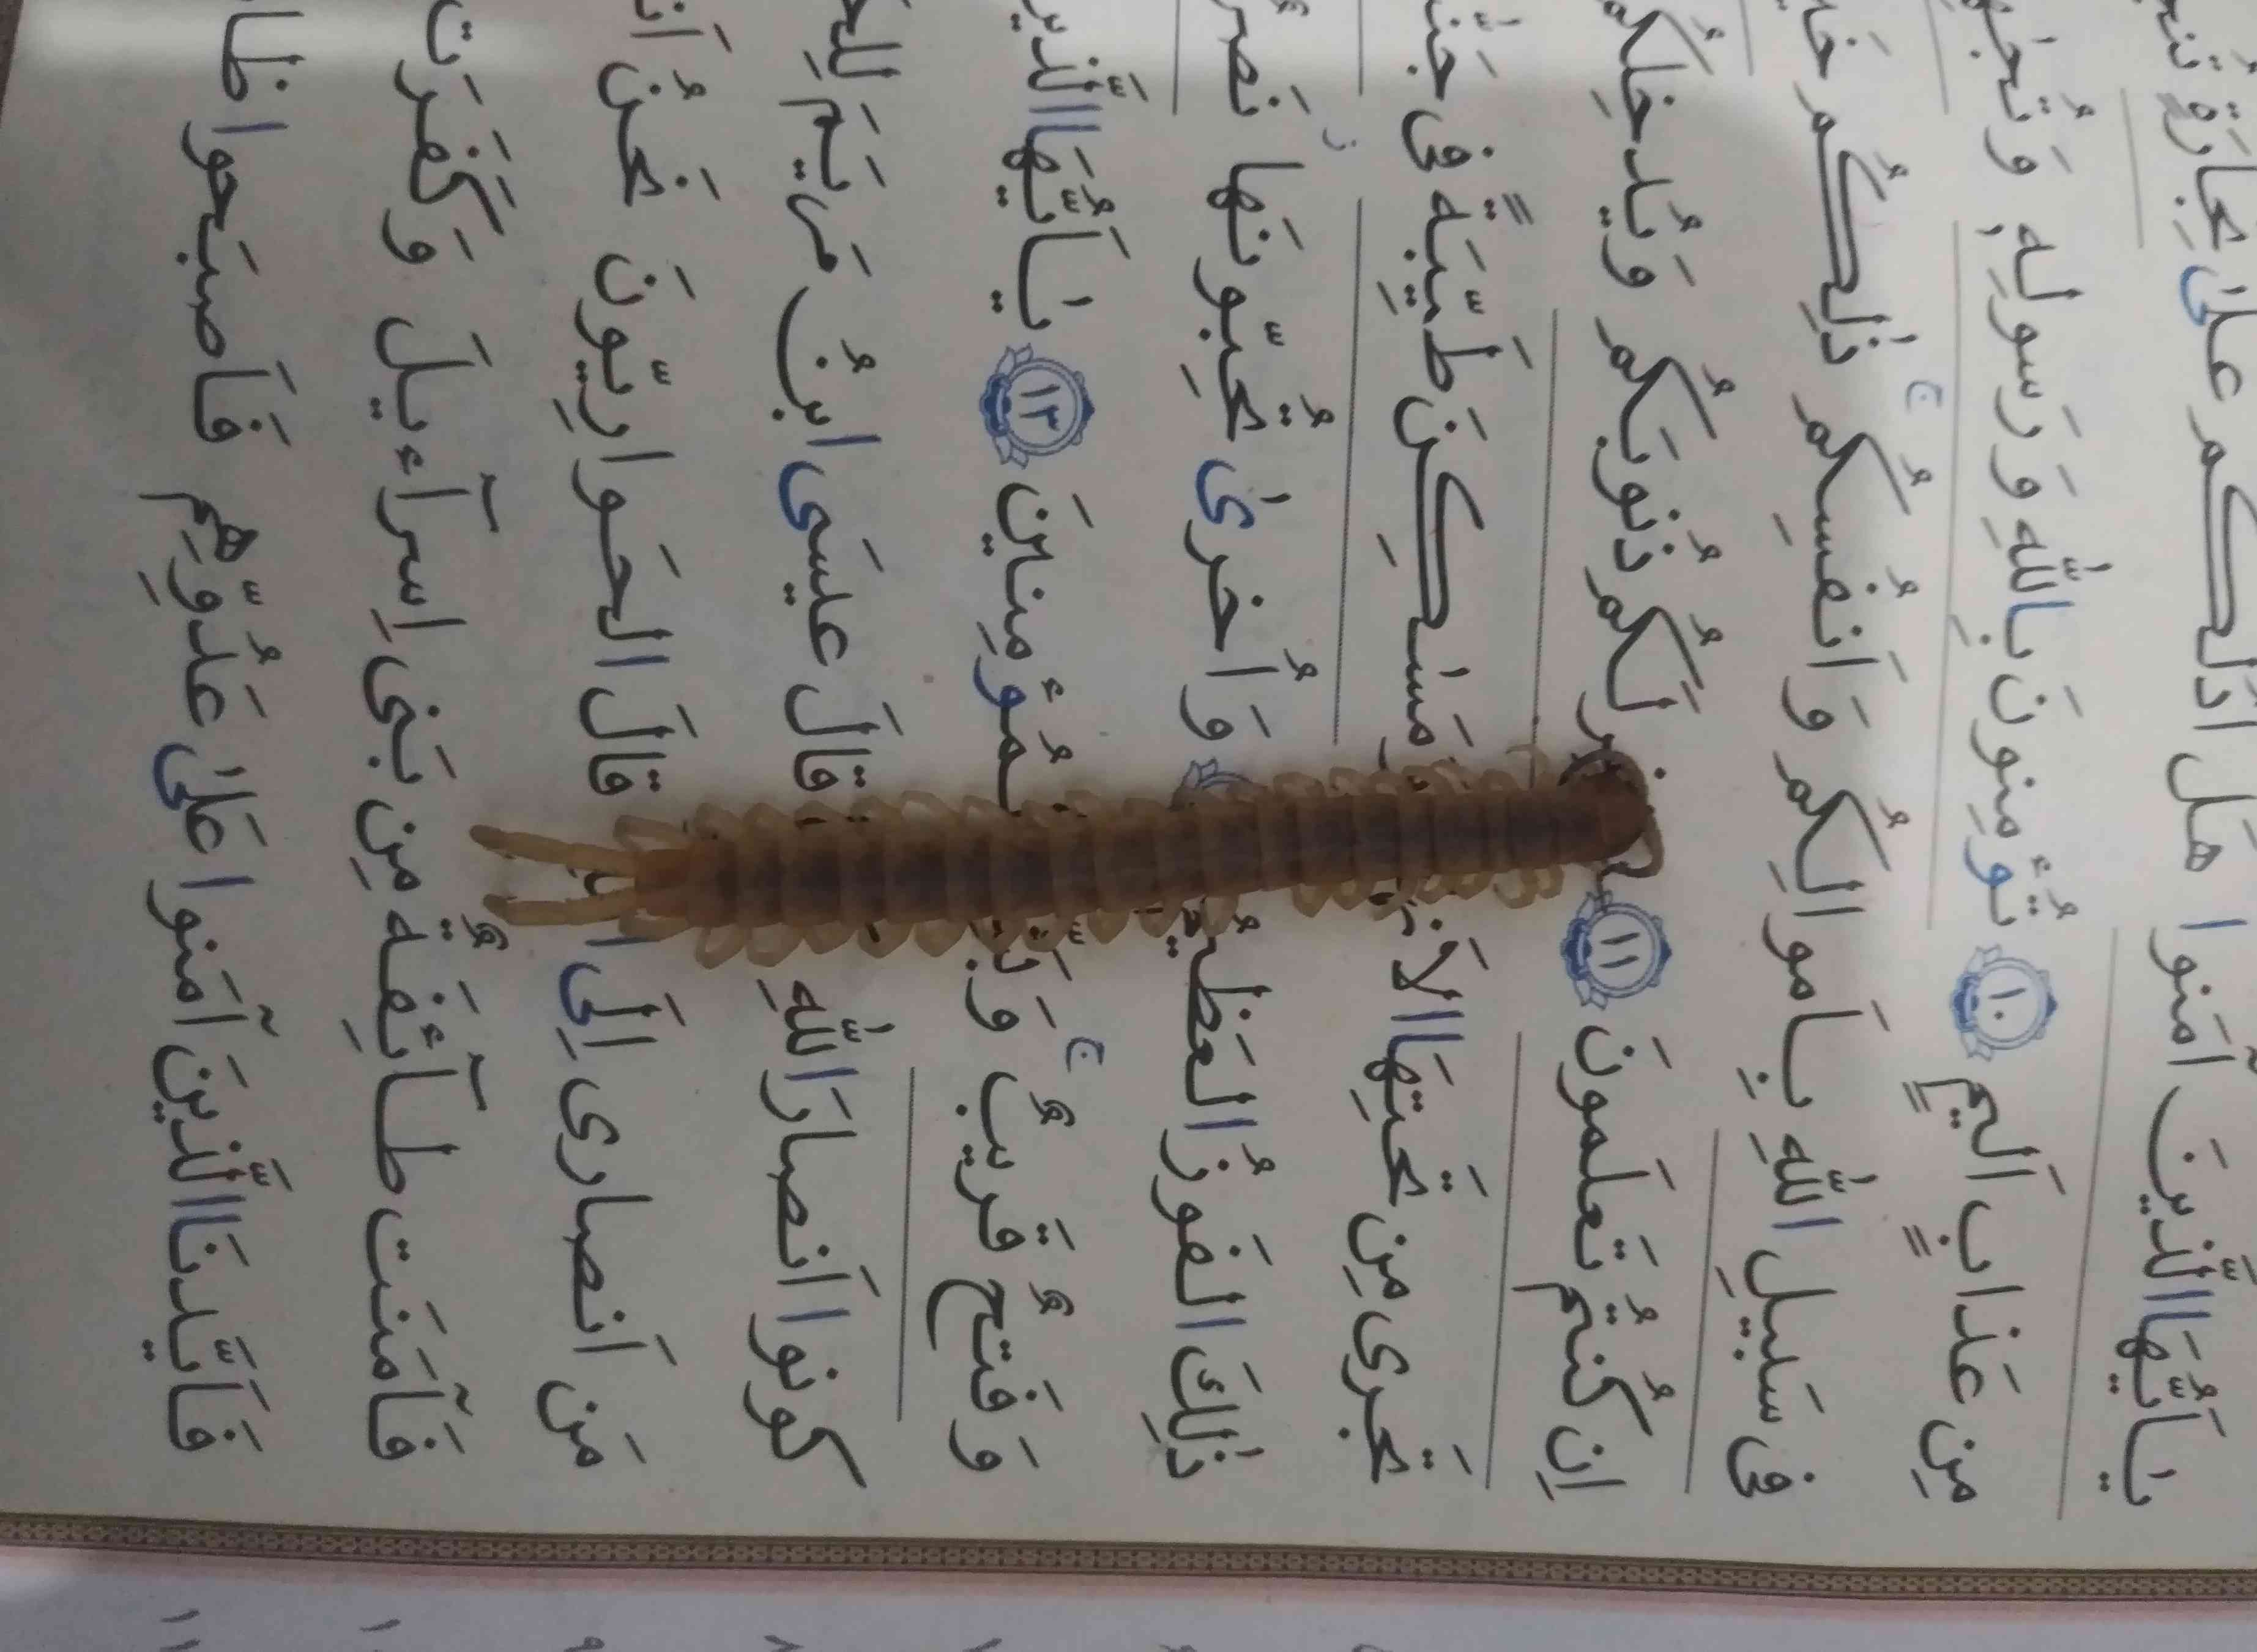 يا أَيُّهَا الَّذينَ آمَنوا هَل أَدُلُّكُم عَلىٰ تِجارَةٍ
مِن عَذابٍ أَليمٍ ١٠ تُؤمِنونَ بِاللَّهِ وَرَسولِهِ
في سَبيلِ اللَّهِ بِأَموالِكُم وَأَنفُسِكُم ۚ ذٰلِكُم
إِن كُنتُم تَعلَمونَ ١١ لَكُم ذُنوبَكُم وَيُدخِلكُم
تَجري مِن تَحتِهَا مَسٰكِنَ طَيِّبَةً في
ذٰلِكَ الفَوزُ العَظيمُ وَأُخرىٰ تُحِبّونَها
وَفَتحٌ قَريبٌ ۗ المُؤمِنينَ ١٣ يا أَيُّهَا الَّذينَ
كونوا أَنصارَ اللَّهِ قالَ عيسَى ابنُ مَريَمَ
مَن أَنصاري إِلَى قالَ الحَوارِيّونَ نَحنُ
فَآمَنَت طائِفَةٌ مِن بَني إِسرائيلَ وَكَفَرَت
فَأَيَّدنَا الَّذينَ آمَنوا عَلىٰ عَدُوِّهِم فَأَصبَحوا